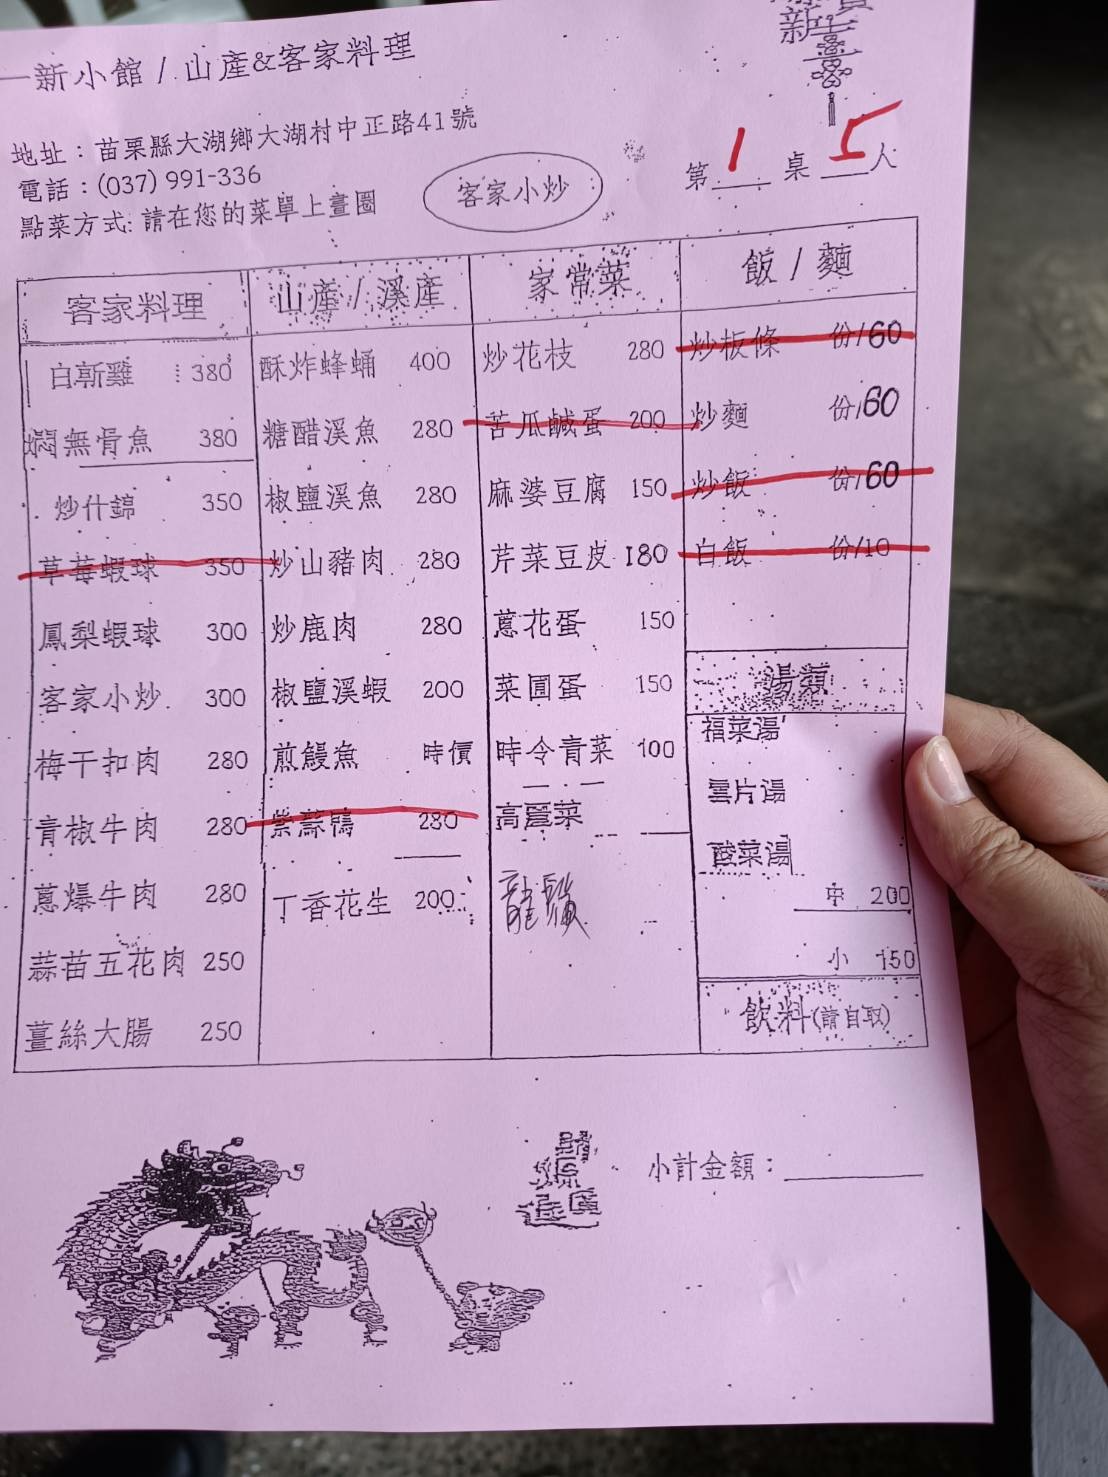 新
一新小館 / 山產&客家料理
地址：苗栗縣大湖鄉大湖村中正路41號
電話：(037) 991-336
點菜方式: 請在您的菜單上畫圈
客家小炒
第 1 桌 5 人
客家料理
白斬雞 380
燜無骨魚 380
炒什錦 350
草莓蝦球 350
鳳梨蝦球 300
客家小炒 300
梅干扣肉 280
青椒牛肉 280
蔥爆牛肉 280
蒜苗五花肉 250
薑絲大腸 250
山產 / 溪產
酥炸蜂蛹 400
糖醋溪魚 280
椒鹽溪魚 280
炒山豬肉 280
炒鹿肉 280
椒鹽溪蝦 200
煎鰻魚 時價
紫蘇鴨 280
丁香花生 200
家常菜
炒花枝 280
苦瓜鹹蛋 200
麻婆豆腐 150
芹菜豆皮 180
蔥花蛋 150
菜圃蛋 150
時令青菜 100
高麗菜
龍鬚
飯 / 麵
炒板條 份/60
炒麵 份/60
炒飯 份/60
白飯 份/10
湯類
福菜湯
雲片湯
酸菜湯
中 200
小 150
飲料(請自取)
小計金額：